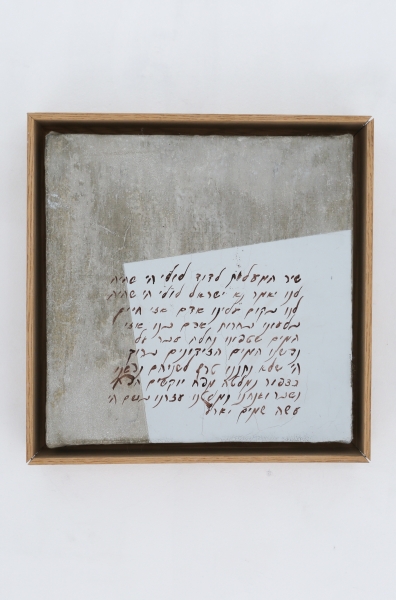 שיר המעלות לדוד לולי ה' שהיה
לנו יאמר נא ישראל לולי ה' שהיה
לנו בקום עלינו אדם אזי חיים
בלעונו בחרות אפם בנו אזי
המים שטפונו נחלה עבר על
נפשנו המים הזידונים ברוך
ה' שלא נתננו טרף לשניהם נפשנו
כצפור נמלטה מפח יוקשים הפח
נשבר ואנחנו נמלטנו עזרנו בשם ה'
עשה שמים וארץ